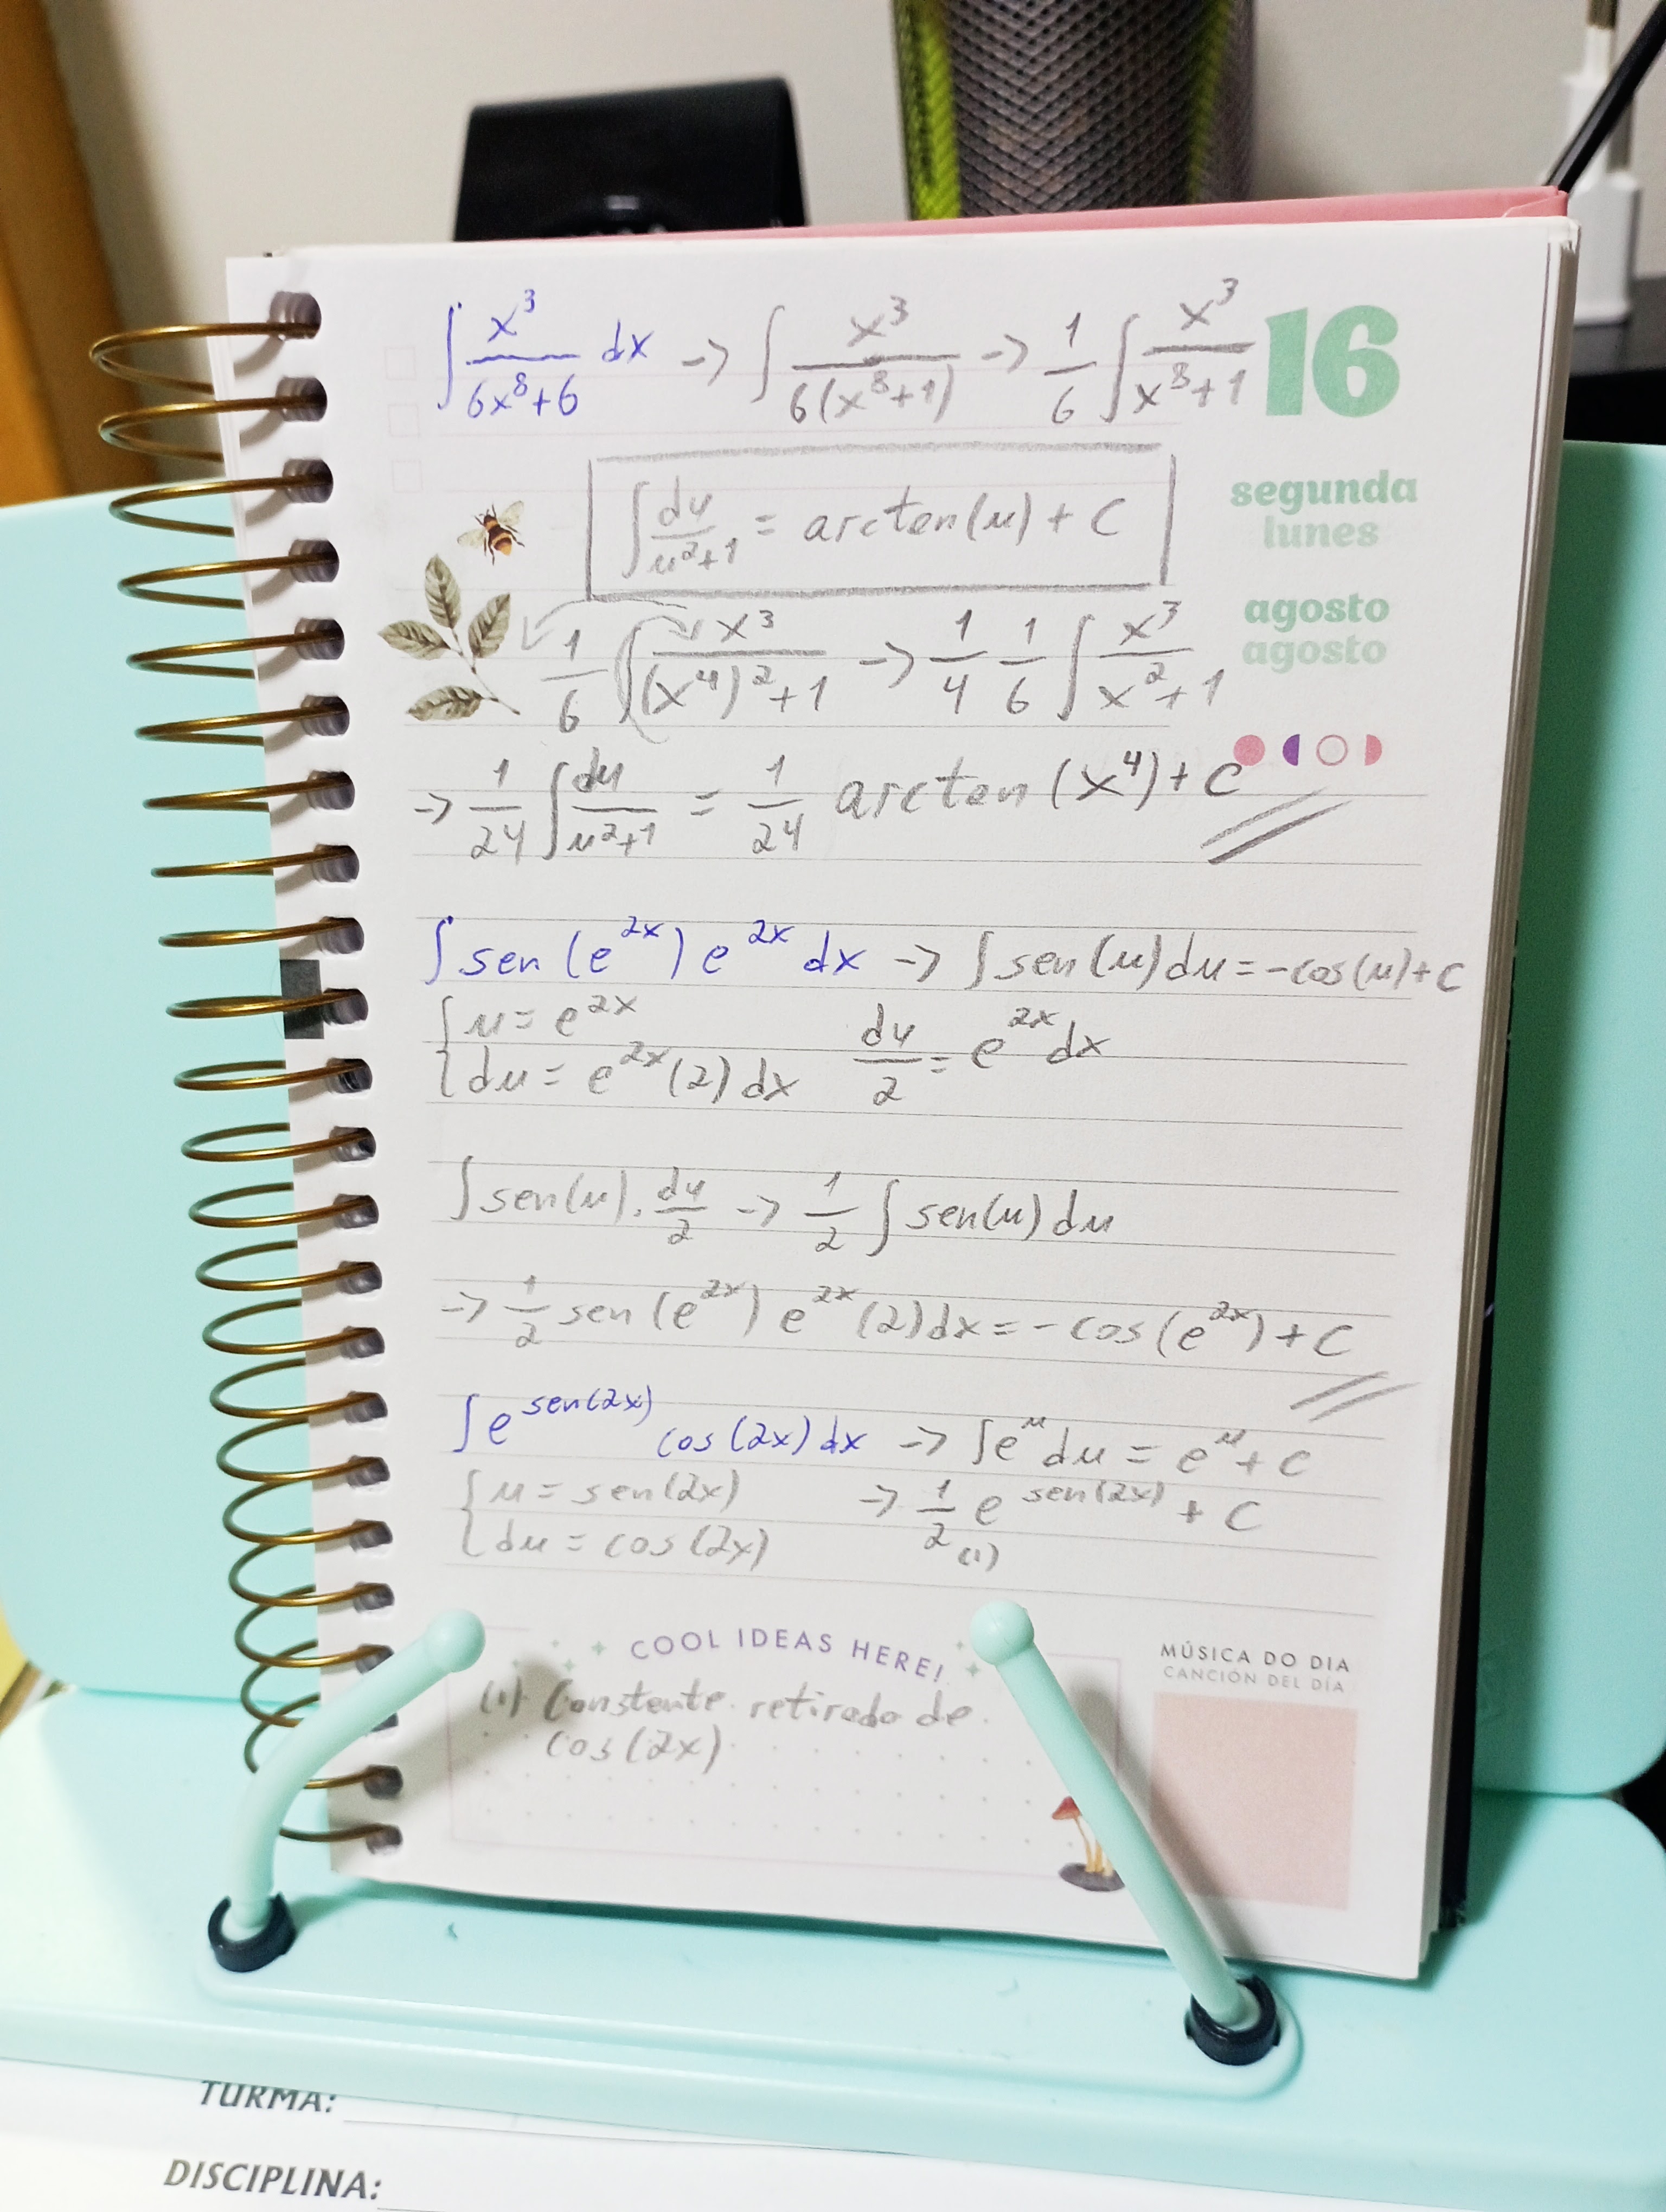 ∫ x³/(6x⁸+6) dx -> ∫ x³/(6(x⁸+1)) -> 1/6 ∫ x³/(x⁸+1)
16
segunda
lunes
agosto
agosto
∫ du/(u²+1) = arctan(u) + C
1/6 ∫ x³/((x⁴)²+1) -> 1/4 1/6 ∫ x³/(x²+1)
-> 1/24 ∫ du/(u²+1) = 1/24 arctan (x⁴) + C
∫ sen (e²ˣ) e²ˣ dx -> ∫ sen(u) du = -cos(u) + C
{ u = e²ˣ
{ du = e²ˣ (2) dx du/2 = e²ˣ dx
∫ sen(u) . du/2 -> 1/2 ∫ sen(u) du
-> 1/2 sen (e²ˣ) e²ˣ (2) dx = - cos (e²ˣ) + C
∫ e^sen(2x) cos (2x) dx -> ∫ eᵘ du = eᵘ + C
{ u = sen(2x) -> 1/2 e^sen(2x) + C
{ du = cos (2x) (1)
COOL IDEAS HERE!
(1) Constante retirada de
cos (2x)
MÚSICA DO DIA
CANCIÓN DEL DÍA
TURMA:
DISCIPLINA: